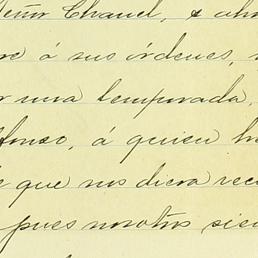 Señor Chanel, & aho
re á sus órdenes,
r una temporada,
fonso, á quien ha
e que nos diera rec
pues nosotros sie